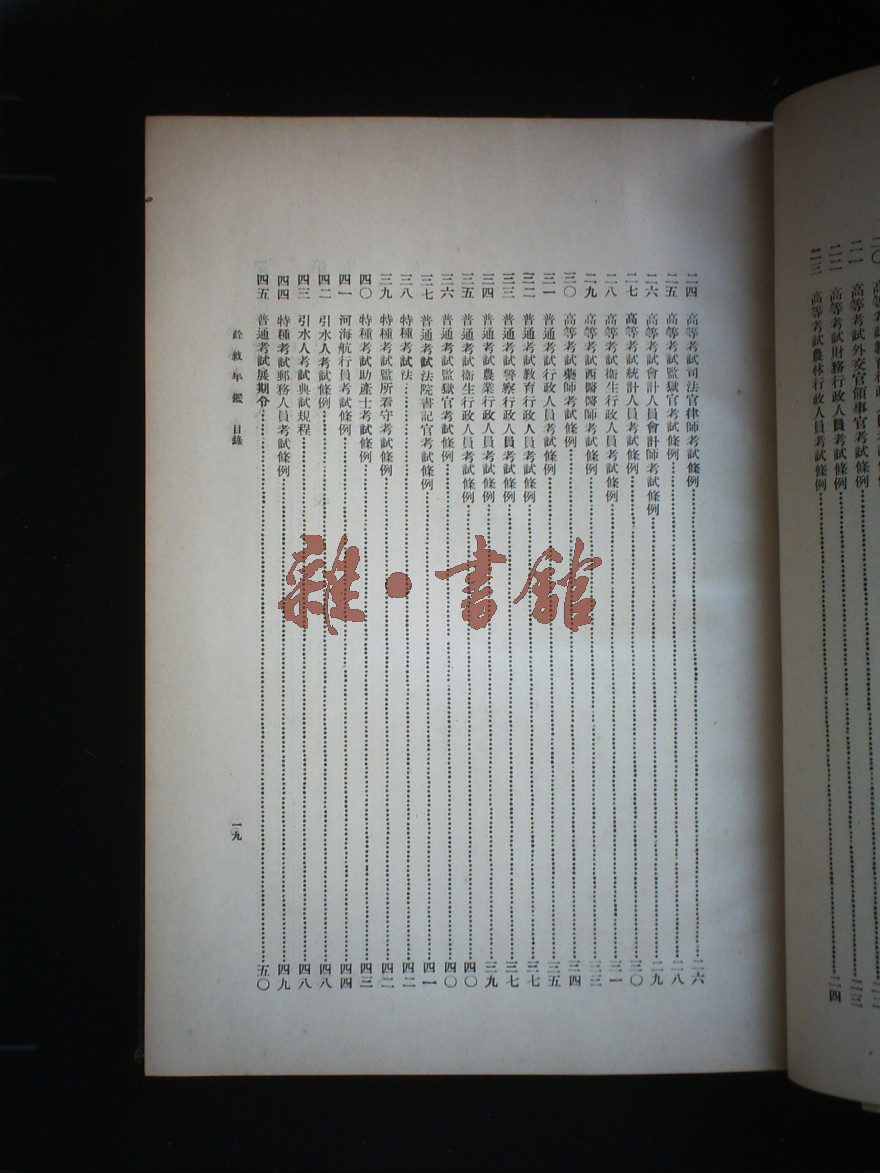 二一 高等考試外交官領事官考試條例
二二 高等考試財務行政人員考試條例……二三
二三 高等考試農林行政人員考試條例……二四
二四 高等考試司法官律師考試條例……二六
二五 高等考試監獄官考試條例……二八
二六 高等考試會計人員會計師考試條例……二九
二七 高等考試統計人員考試條例……三〇
二八 高等考試衛生行政人員考試條例……三一
二九 高等考試西醫醫師考試條例……三三
三〇 高等考試藥師考試條例……三四
三一 普通考試行政人員考試條例……三五
三二 普通考試教育行政人員考試條例……三七
三三 普通考試警察行政人員考試條例……三七
三四 普通考試農業行政人員考試條例……三九
三五 普通考試衛生行政人員考試條例……四〇
三六 普通考試監獄官考試條例……四〇
三七 普通考試法院書記官考試條例……四一
三八 特種考試法……四二
三九 特種考試監所看守考試條例……四二
四〇 特種考試助產士考試條例……四三
四一 河海航行員考試條例……四四
四二 引水人考試條例……四八
四三 引水人考試典試規程……四八
四四 特種考試郵務人員考試條例……四九
四五 普通考試展期令……五〇
銓敘年鑑 目錄
一九
雜·書館